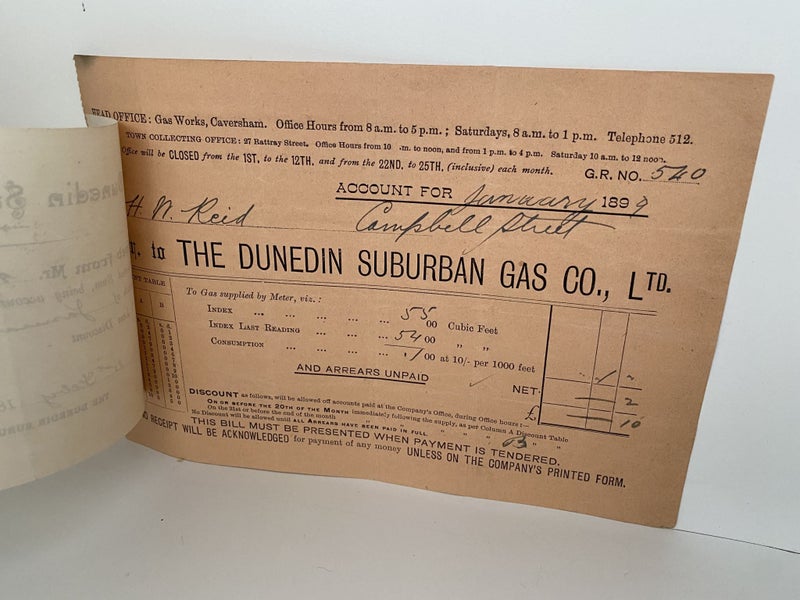 HEAD OFFICE: Gas Works, Caversham. Office Hours from 8 a.m. to 5 p.m.; Saturdays, 8 a.m. to 1 p.m. Telephone 512.
TOWN COLLECTING OFFICE: 27 Rattray Street. Office Hours from 10 .m. to noon, and from 1 p.m. to 4 p.m. Saturday 10 a.m. to 12 noon.
Office will be CLOSED from the 1ST. to the 12TH. and from the 22ND. to 25TH. (inclusive) each month.
G.R. NO. 540
ACCOUNT FOR January 1899
H. W. Reid Campbell Street
to THE DUNEDIN SUBURBAN GAS CO., LTD.
TABLE
A B
To Gas supplied by Meter, viz.:
INDEX ... ... ... ... ... 5500 Cubic Feet
INDEX LAST READING ... ... ... 5400 " "
CONSUMPTION ... ... ... ... 100 at 10/- per 1000 feet
AND ARREARS UNPAID
" 1 "
NET 2
£ 10
DISCOUNT as follows, will be allowed off accounts paid at the Company's Office, during Office hours:—
ON OR BEFORE THE 20TH OF THE MONTH immediately following the supply, as per Column A Discount Table
On the 21st or before the end of the month " " " " B " "
No Discount will be allowed until ALL ARREARS HAVE BEEN PAID IN FULL.
THIS BILL MUST BE PRESENTED WHEN PAYMENT IS TENDERED.
NO RECEIPT WILL BE ACKNOWLEDGED for payment of any money UNLESS ON THE COMPANY'S PRINTED FORM.